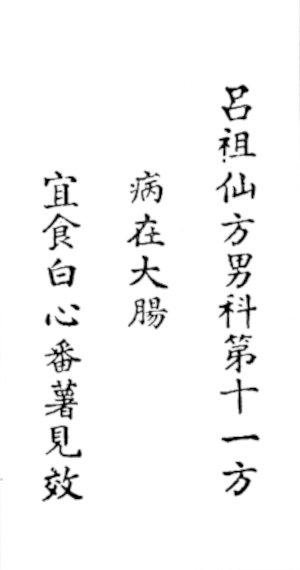 呂祖仙方男科第十一方
病在大腸
宜食白心番薯見效